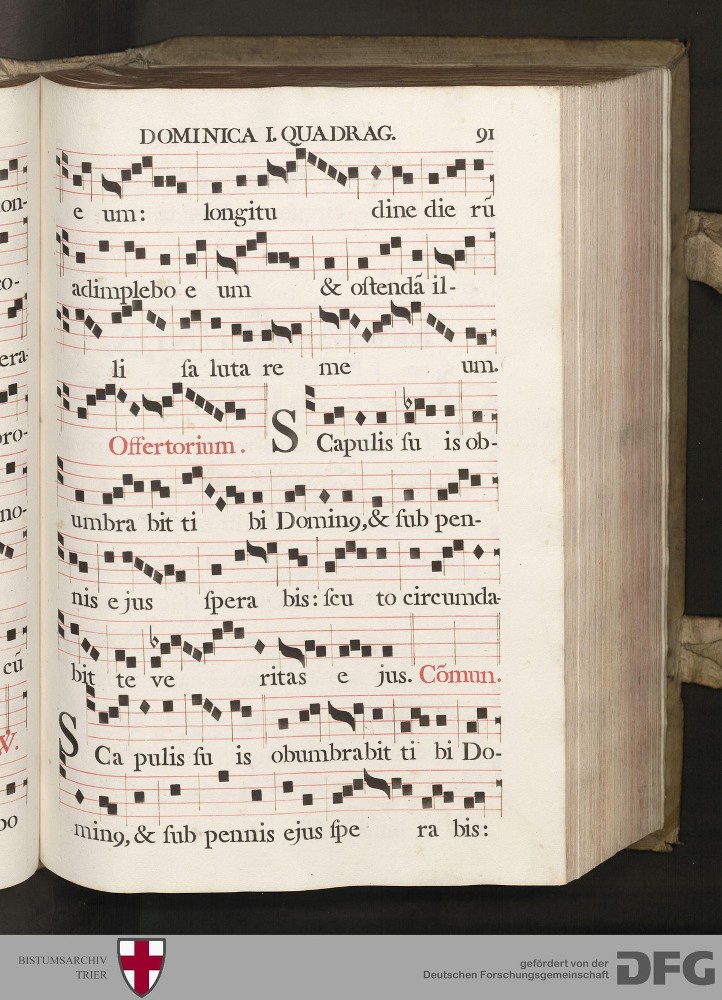 DOMINICA I. QUADRAG. 91
e um: longitu dine die rũ
adimplebo e um & oſtendã il-
li ſa luta re me um.
Offertorium. SCapulis ſu is ob-
umbra bit ti bi Domin9, & ſub pen-
nis ejus ſpera bis: ſcu to circumda-
bit te ve ritas e jus. Cõmun.
SCa pulis ſu is obumbrabit ti bi Do-
min9, & ſub pennis ejus ſpe ra bis:
on-
co-
era-
pro-
no-
cũ
℣.
bo
BISTUMSARCHIV
TRIER
gefördert von der
Deutschen Forschungsgemeinschaft
DFG